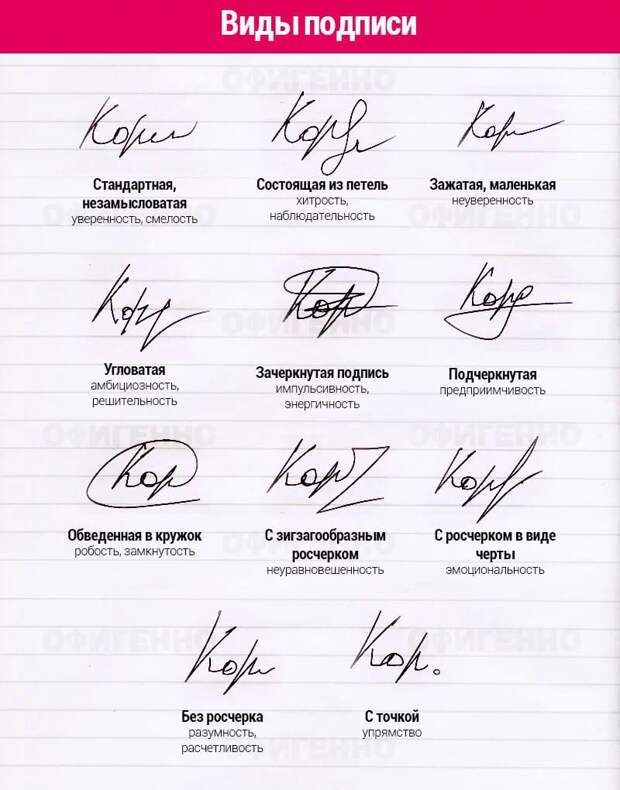 Виды подписи
ОФИГЕННО
Стандартная, незамысловатая
уверенность, смелость
Состоящая из петель
хитрость,
наблюдательность
Зажатая, маленькая
неуверенность
ОФИГЕННО ОФИГЕННО
ОФИГЕННО
Угловатая
амбициозность,
решительность
Зачеркнутая подпись
импульсивность,
энергичность
Подчеркнутая
предприимчивость
ОФИГЕННО ОФИГЕННО
Кор
Обведенная в кружок
робость, замкнутость
С зигзагообразным
росчерком
неуравновешенность
С росчерком в виде
черты
эмоциональность
ОФИГЕННО
ОФИГЕННО ОФИГЕННО
Кор.
Без росчерка
разумность,
расчетливость
С точкой
упрямство
ОФИГЕННО